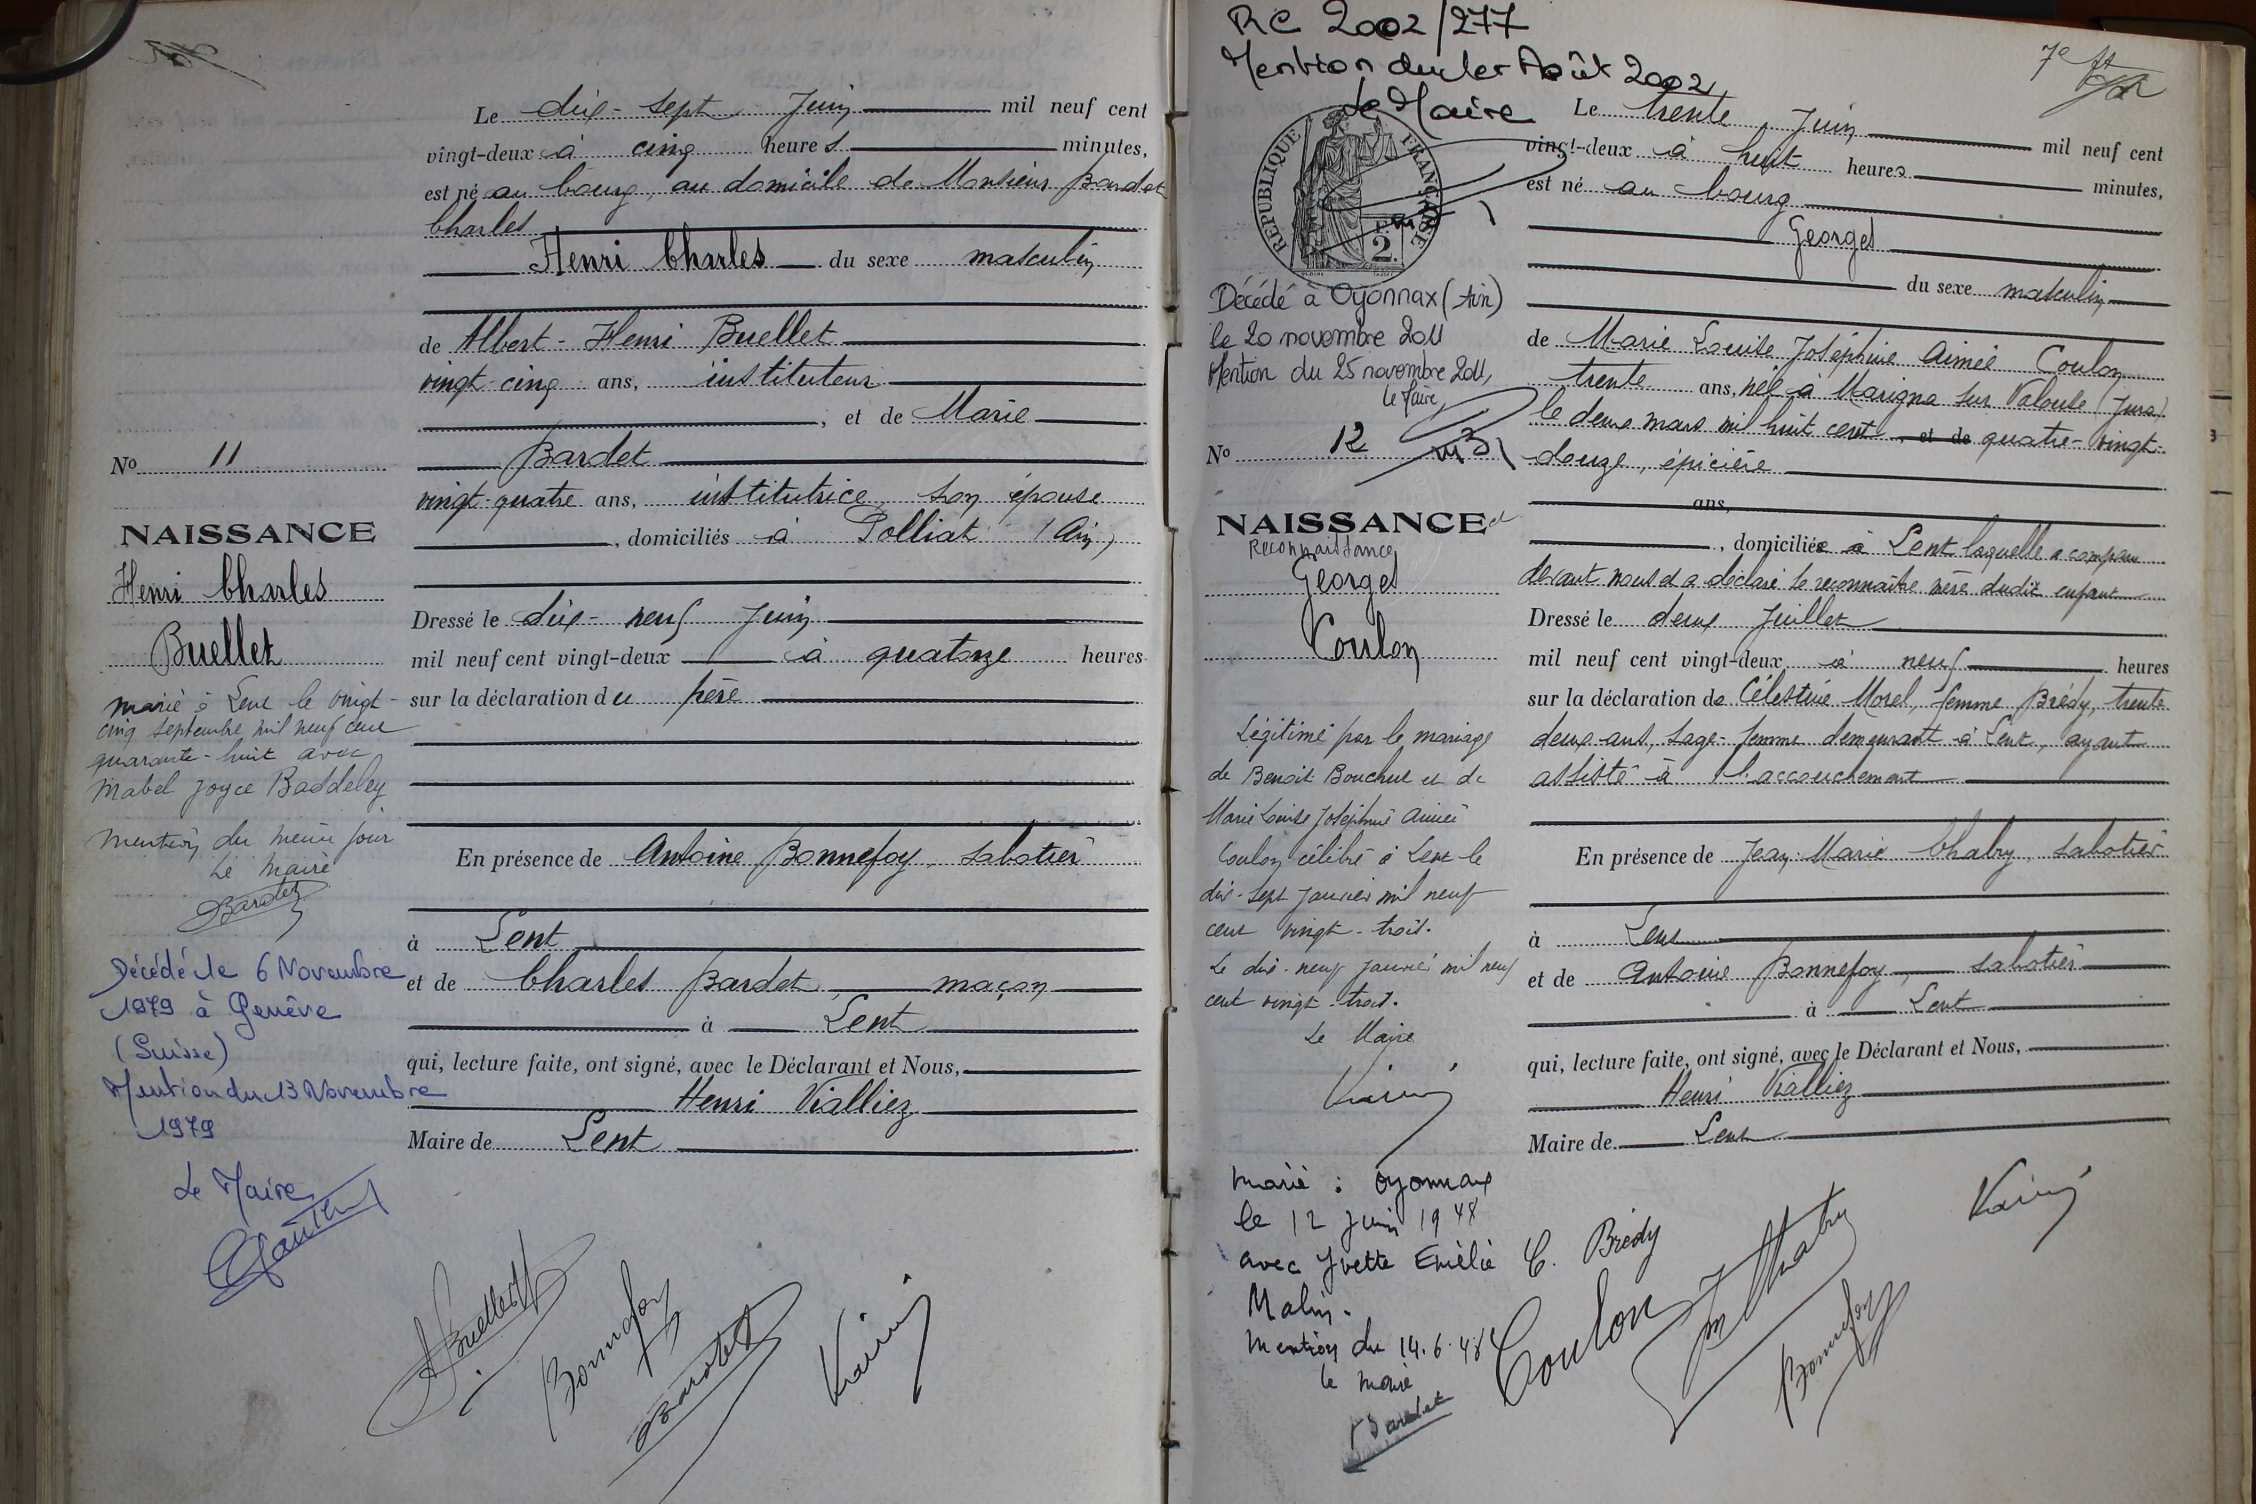 Le dix-sept Juin mil neuf cent
vingt-deux à cinq heures minutes,
est né au bourg, au domicile de Monsieur Bardet
Charles
Henri Charles du sexe masculin
de Albert-Henri Buellet
vingt-cinq ans, instituteur
, et de Marie
Bardet
vingt-quatre ans, institutrice, son épouse
, domiciliés à Polliat (Ain)
Dressé le dix-neuf Juin
mil neuf cent vingt-deux à quatorze heures
sur la déclaration du père
En présence de Antoine Bonnefoy, sabotier
à Lent
et de Charles Bardet maçon
à Lent
qui, lecture faite, ont signé, avec le Déclarant et Nous,
Henri Vialliez
Maire de Lent
No 11
NAISSANCE
Henri Charles
Buellet
marié à Lent le vingt-
cinq septembre mil neuf cent
quarante-huit avec
Mabel Joyce Baddeley
Mention du même jour
Le Maire
Bardet
Décédé le 6 Novembre
1979 à Genève
(Suisse)
Mention du 13 Novembre
1979
Le Maire
A Buellet
Bonnefoy
Bardet
RC 2002/277
Mention du 1er Août 2002
Le Maire
7e ft
RÉPUBLIQUE FRANÇAISE
2
Décédé à Oyonnax (Ain)
le 20 novembre 2011
Mention du 25 novembre 2011,
le Maire,
No 12
NAISSANCE et
Reconnaissance
Georges
Coulon
Légitimé par le mariage
de Benoit Bouchut et de
Marie Louise Joséphine Aimée
Coulon célébré à Lent le
dix-sept janvier mil neuf
cent vingt-trois.
Le dix-neuf janvier mil neuf
cent vingt-trois.
Le Maire
marié : Oyonnax
le 12 juin 1948
avec Yvette Emélie
Malin.
Mention du 14.6.48
le maire
Bardet
Le trente Juin mil neuf cent
vingt-deux à huit heures minutes,
est né au bourg
Georges
du sexe masculin
de Marie Louise Joséphine Aimée Coulon
trente ans, née à Marigna sur Valouse (Jura)
le deux mars mil huit cent et de quatre-vingt-
douze, épicière
ans,
, domiciliée à Lent laquelle a comparu
devant nous et a déclaré se reconnaître mère dudit enfant
Dressé le deux Juillet
mil neuf cent vingt-deux à neuf heures
sur la déclaration de Célestine Morel, femme Brédy, trente
deux ans, sage-femme demeurant à Lent, ayant
assisté à l'accouchement
En présence de Jean-Marie Chatry, sabotier
à Lent
et de Antoine Bonnefoy, sabotier
à Lent
qui, lecture faite, ont signé, avec le Déclarant et Nous,
Henri Vialliez
Maire de Lent
C. Brédy
Coulon
JM Chatry
Bonnefoy